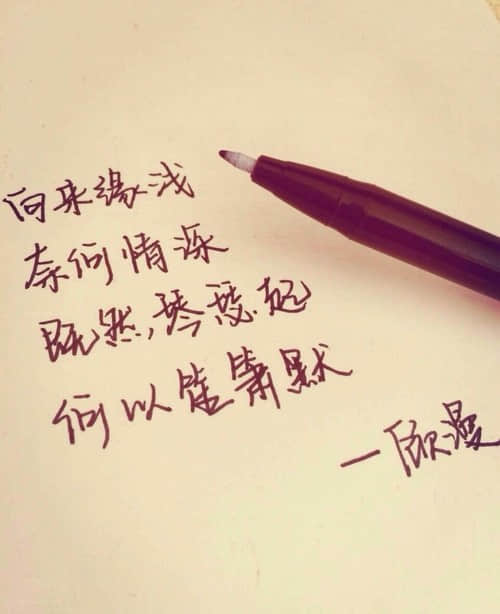 向来缘浅
奈何情深
既然琴瑟起
何以笙箫默
一顾漫